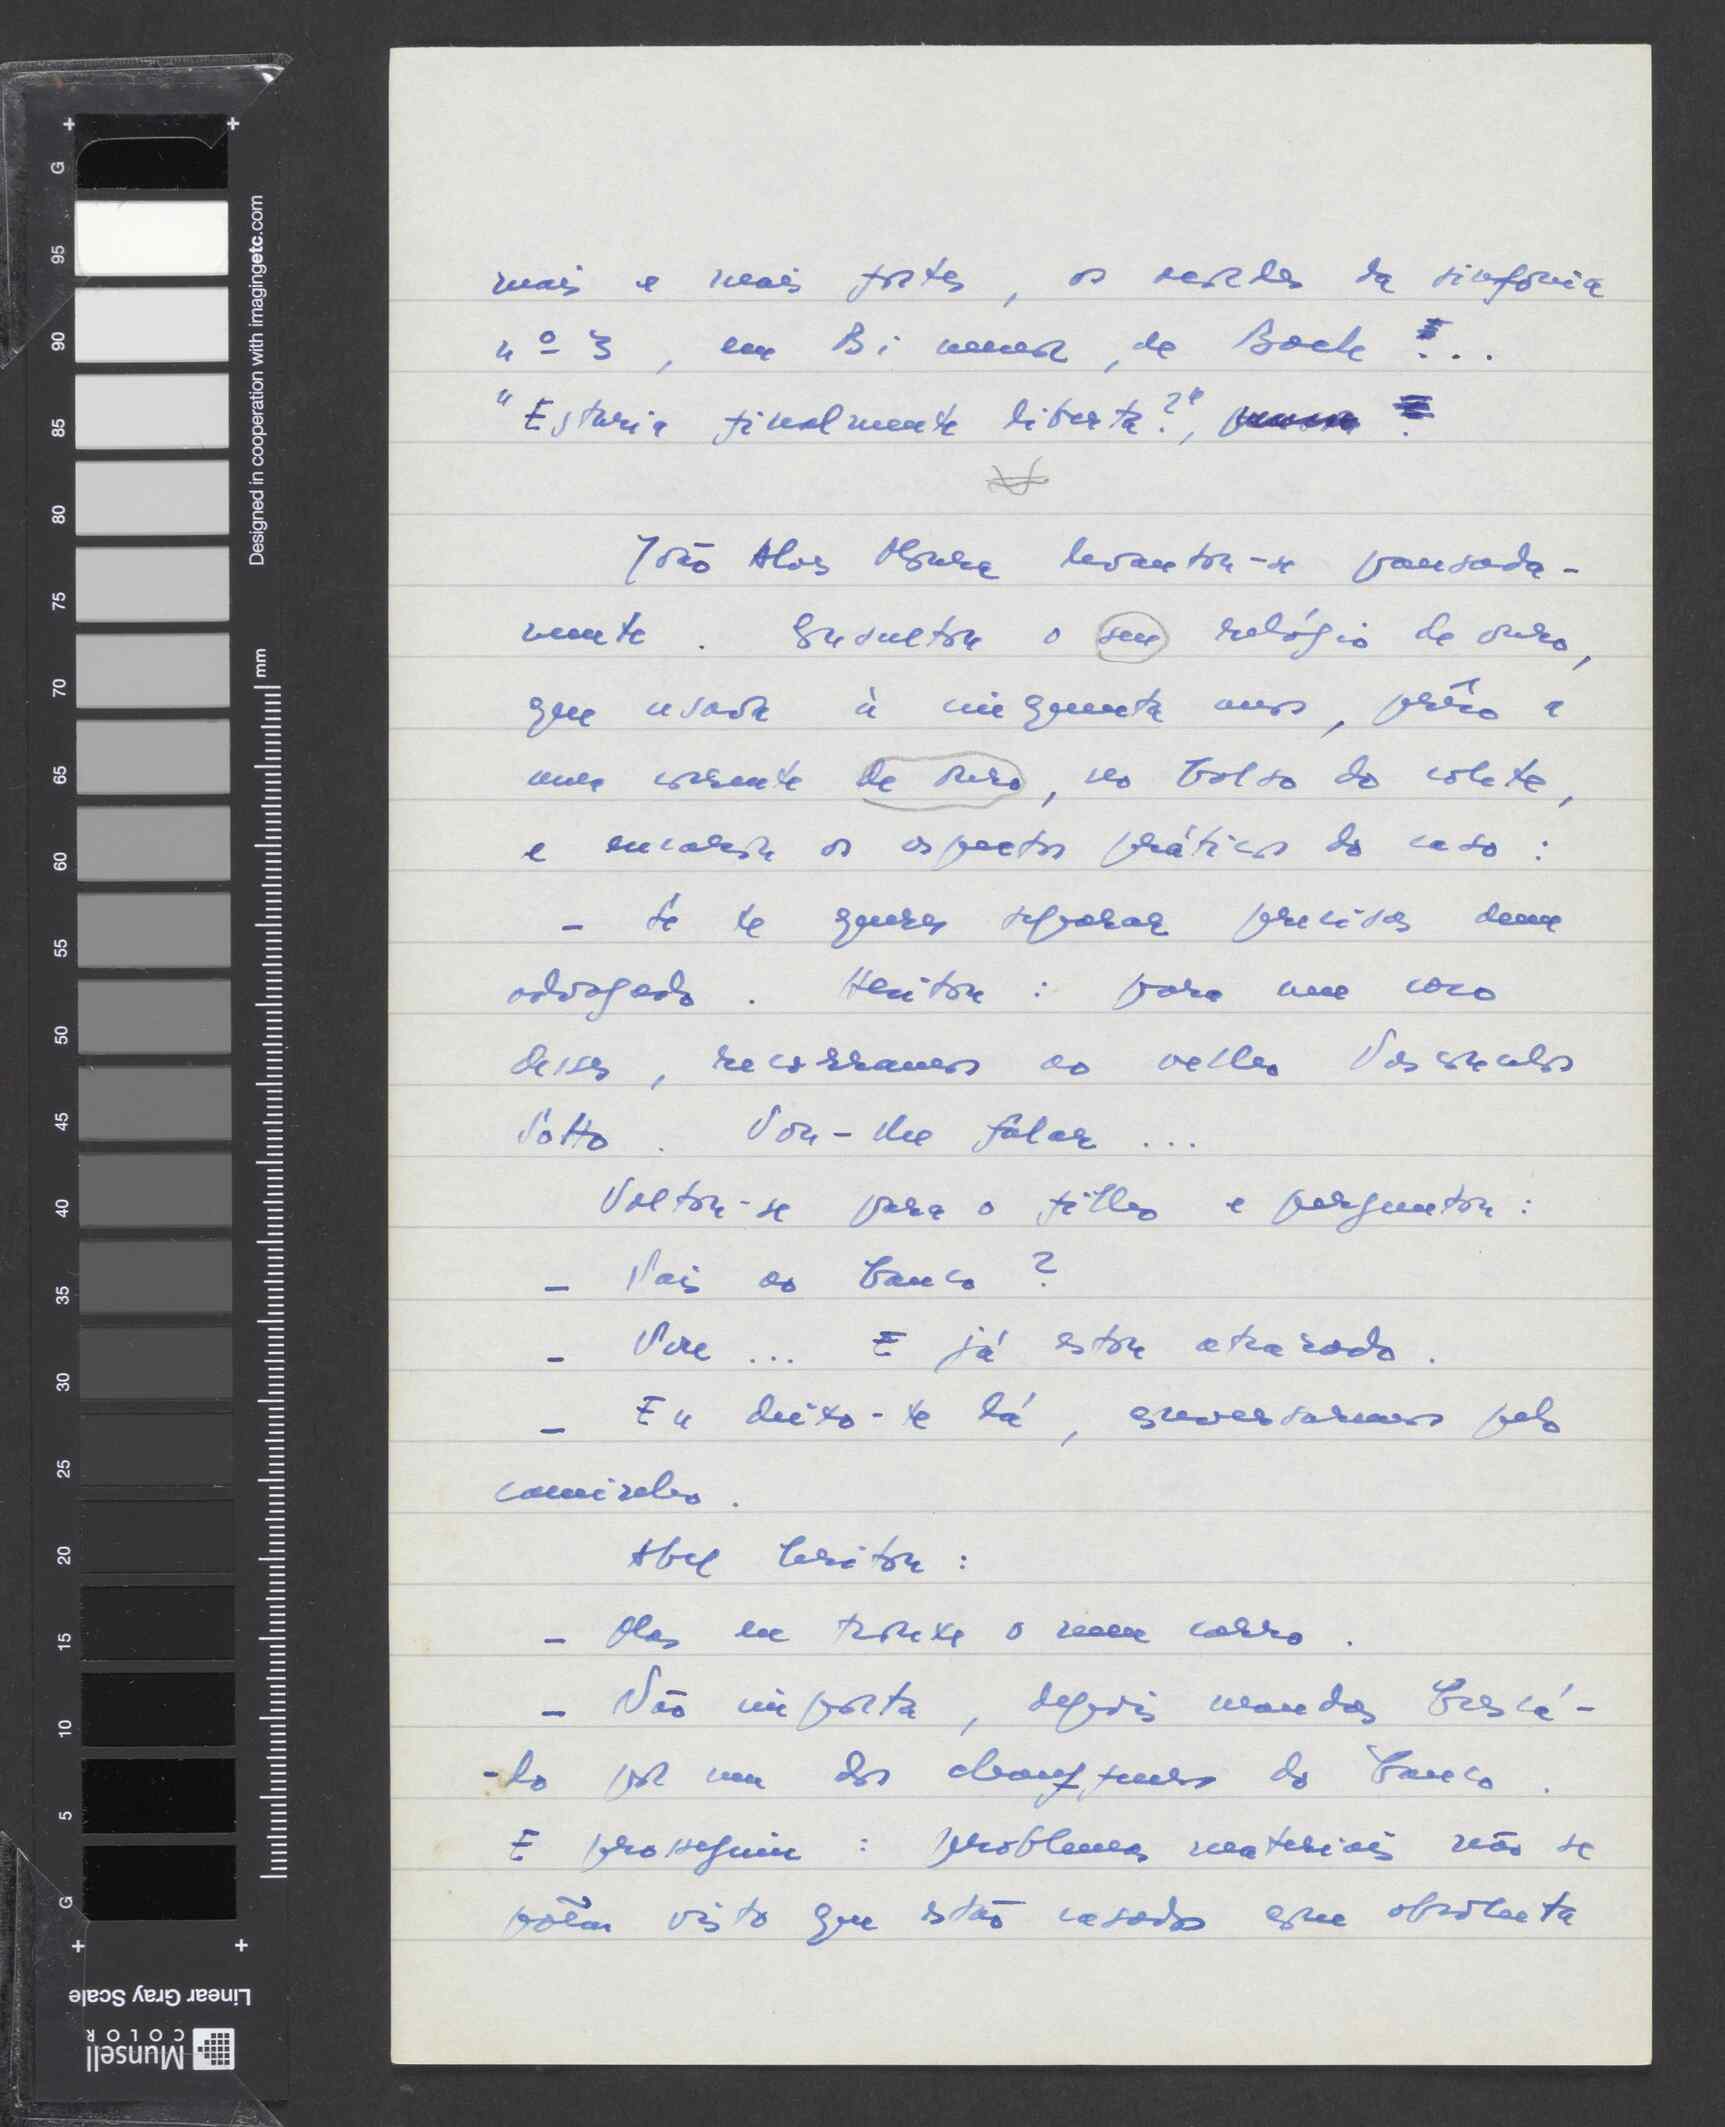 mais e mais fortes, os acordes da sinfonia
nº 3, em Si menor, de Bach ...
"Estaria finalmente liberta?",
João Moura levantou-se pausada-
mente. Consultou o seu relógio de ouro,
que usava à cinquenta anos, prêso a
uma corrente de ouro, no bolso do colete,
e encarou os aspectos práticos do caso:
- Se te queres separar precisas dum
advogado. Hesitou: para um caso
desses, recorramos ao velho Vasconcelos
Sotto. Vou-lhe falar ...
Voltou-se para o filho e perguntou:
- Vais ao banco?
- Vou ... E já estou atrasado.
- Eu deixo-te lá, conversaremos pelo
caminho.
Abel hesitou:
- Mas eu trouxe o meu carro.
- Não importa, depois mandas buscá-
-lo por um dos chauffeurs do banco.
E prosseguiu: problemas materiais não se
põem visto que estão casados com absoluta
G
95
90
85
80
75
70
65
60
55
50
45
40
35
30
25
20
15
10
5
G
mm
Designed in cooperation with imagingetc.com
Linear Gray Scale
Munsell
COLOR